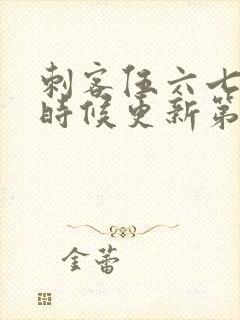 刺客伍六七
時候更新第
金蕾